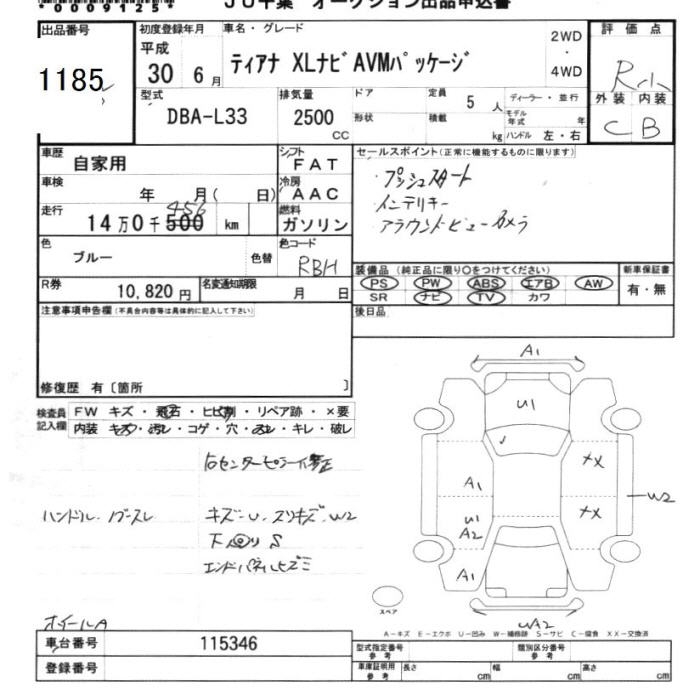 *0009125*
JU千葉 オークション出品申込書
出品番号
1185
初度登録年月
平成
30 6月
車名・グレード
ティアナ XLナビAVMパッケージ
2WD
・
4WD
評価点
R小
外装 内装
C B
型式
DBA-L33
排気量
2500
CC
ドア
形状
定員
5人
積載
kg
ディーラー・並行
モデル年式 年
ハンドル 左・右
車歴
自家用
シフト
FAT
車検
年 月( 日)
冷房
AAC
走行
14万0千500 km
456
燃料
ガソリン
色
ブルー
色替
色コード
RBH
R券
10,820円
名変通知期限
月 日
セールスポイント(正常に機能するものに限ります)
・プッシュスタート
・インテリキー
・アラウンドビューカメラ
装備品(純正品に限り○をつけてください)
PS PW ABS エアB AW
SR ナビ TV カワ
新車保証書
有・無
後日品
注意事項申告欄(不具合内容等は具体的に記入して下さい)
修復歴 有〔箇所 〕
検査員
記入欄
FW キズ・飛石・ヒビ割・リペア跡・×要
内装 キズ・汚レ・コゲ・穴・スレ・キレ・破レ
右センターピラー修正
ハンドル・ノブスレ
キズ・U・スリキズ・W2
下回りS
エンドパネルヒズミ
ホイールA
A1
U1
A1
XX
U1
A2
XX
W2
A1
WA2
スペア
A－キズ E－エクボ U－凹み W－補修跡 S－サビ C－腐食 XX－交換済
車台番号
115346
登録番号
型式指定番号
参考
類別区分番号
参考
車庫証明用
参考
長さ cm
幅 cm
高さ cm